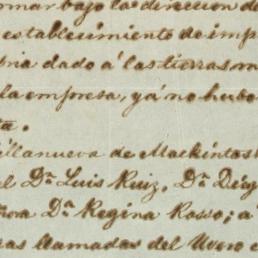 mar bajo la direccion d
establecimiento de imp
dado á las tierras
la empresa, yá no hubo
ta.
illanueva de Mackintos
el Dn. Luis Ruiz, Dn. Dieg
ñora Da. Regina Rosso; a
ras llamadas del Uvero